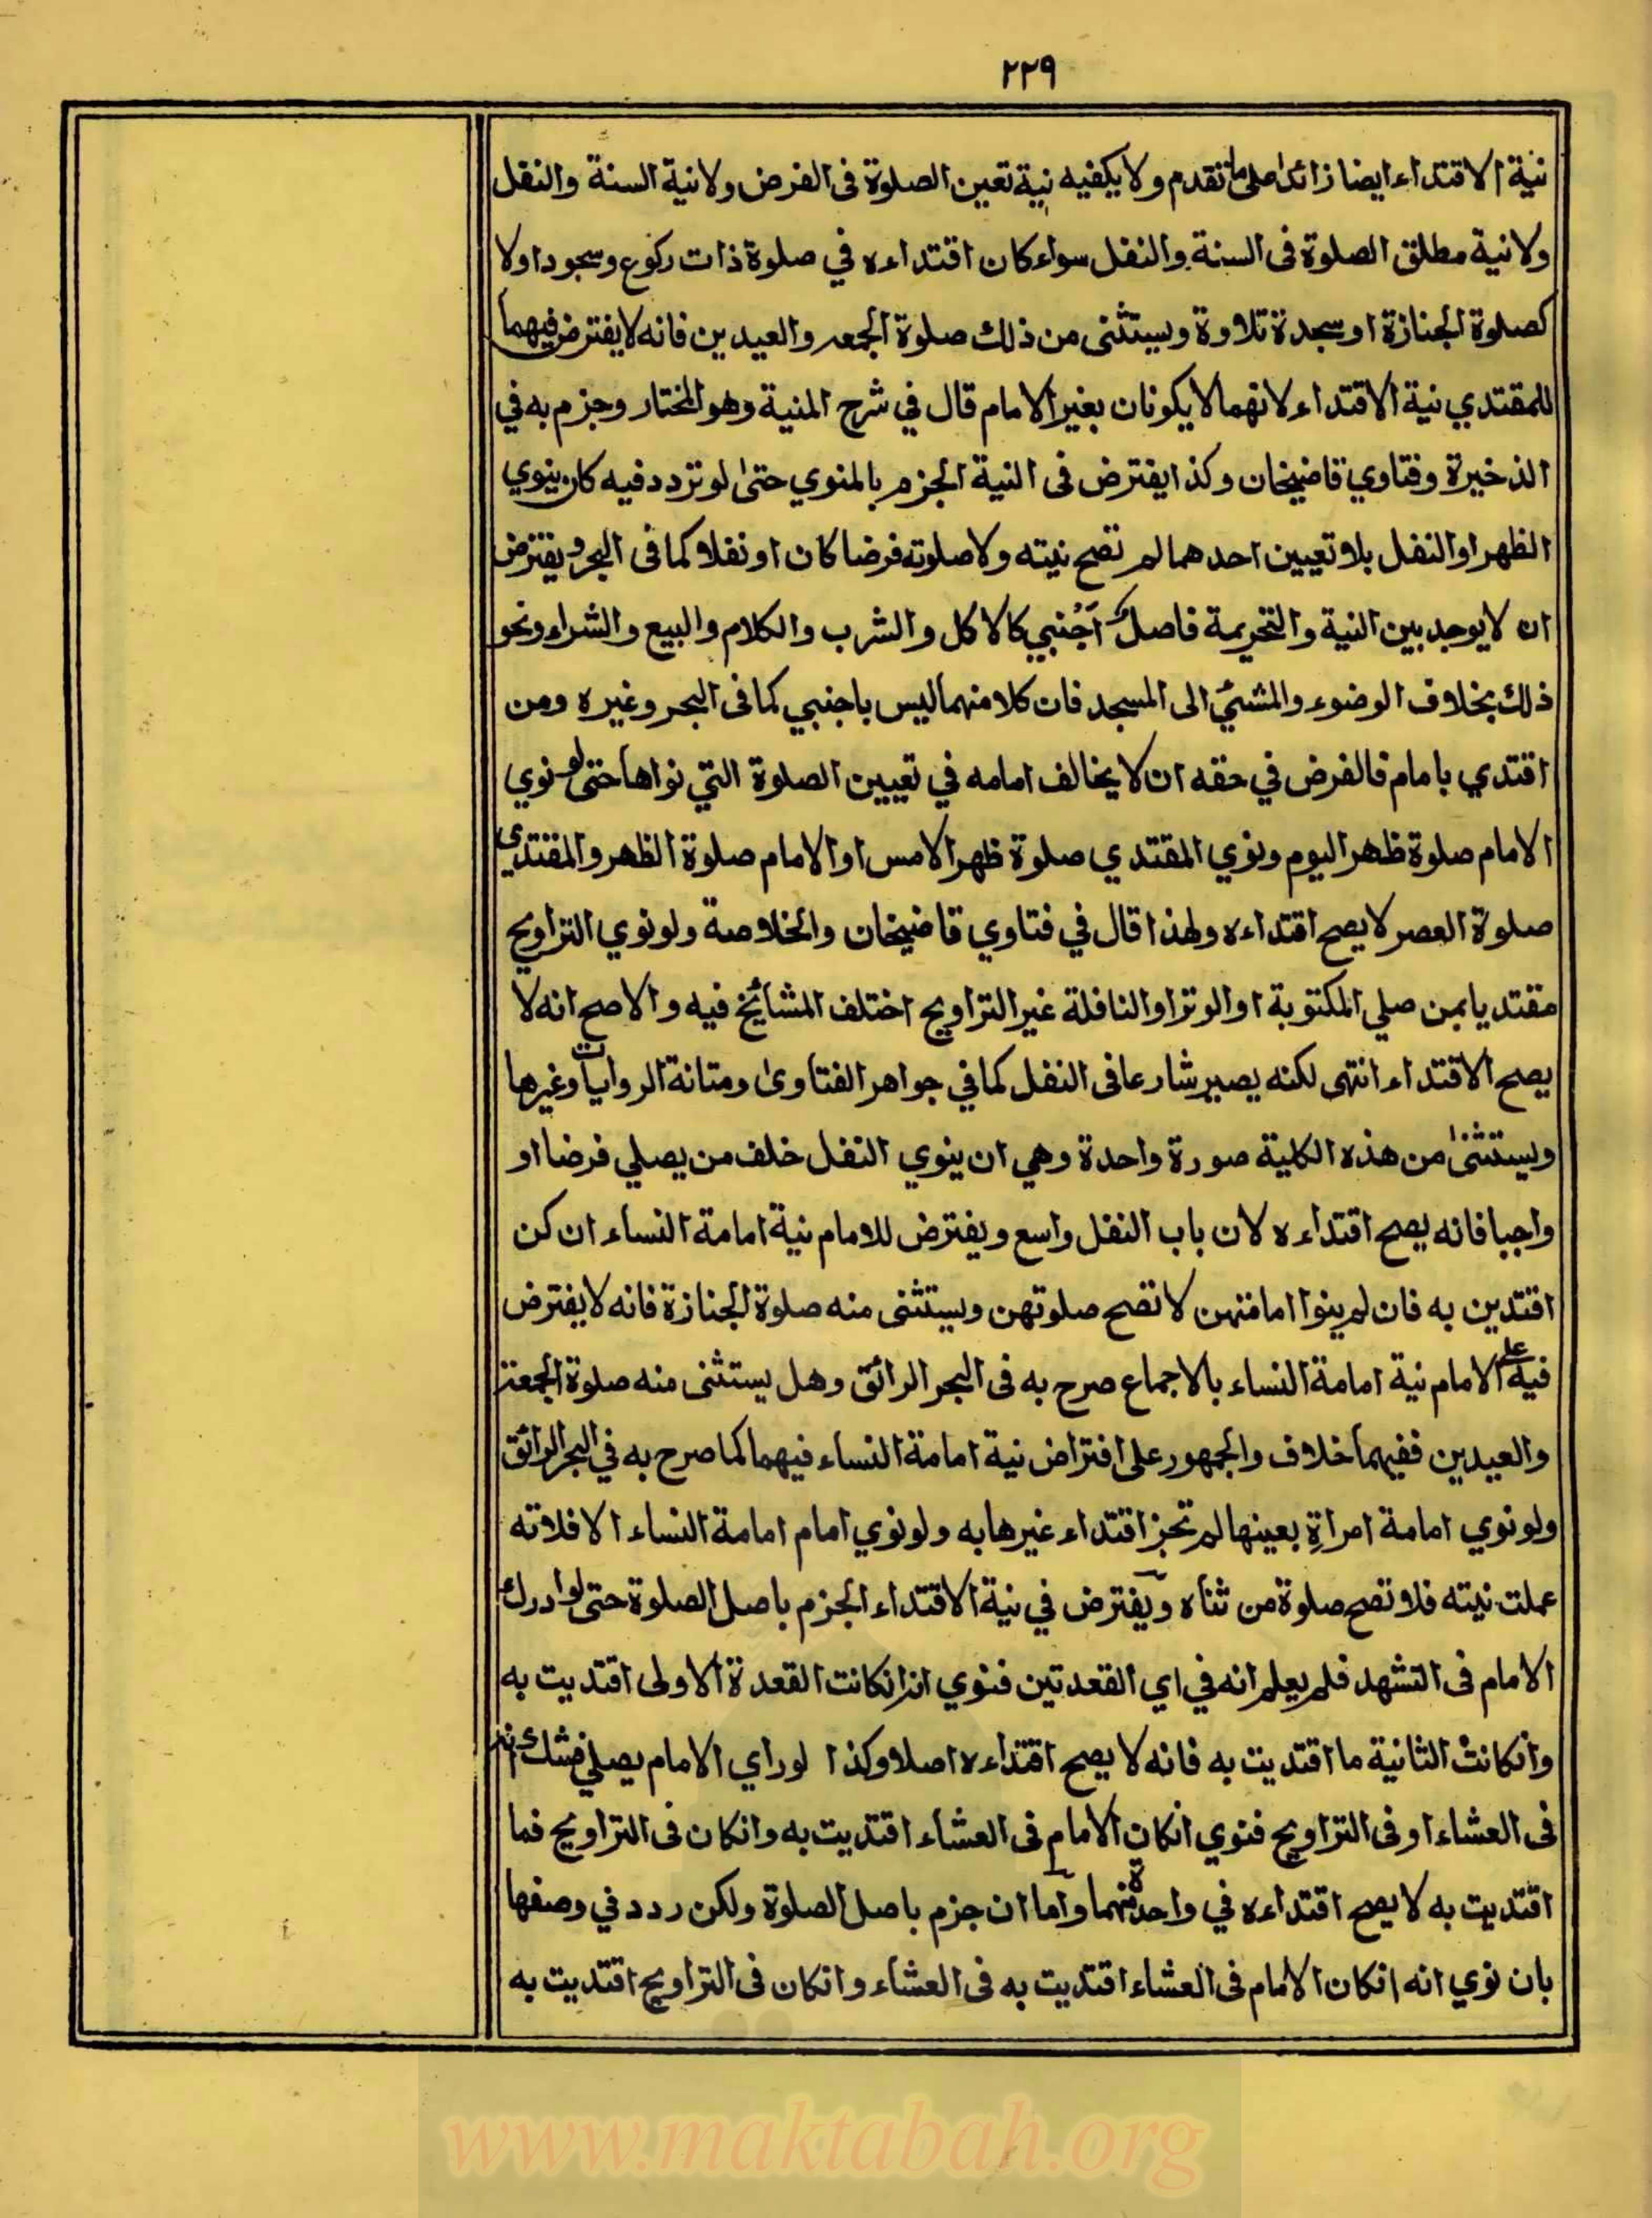 ٢٢٩
نية الاقتداء ايضا زائدا على ما تقدم ولا يكفيه نية تعين الصلوة فى الفرض ولا نية السنة والنفل
ولا نية مطلق الصلوة فى السنة والنفل سواء كان اقتداءه في صلوة ذات ركوع وسجود اولا
كصلوة الجنازة او سجدة تلاوة ويستثنى من ذلك صلوة الجمعه والعيدين فانه لا يفترض فيهما
للمقتدي نية الاقتداء لانهما لا يكونان بغير الامام قال في شرح المنية وهو المختار وجزم به في
الذخيرة وفتاوي قاضيخان وكذا يفترض فى النية الجزم بالمنوي حتى لو تردد فيه كان ينوي
الظهر او النفل بلا تعيين احدهما لم تصح نيته ولا صلوته فرضا كان او نفلا كما فى البحر ويفترض
ان لا يوجد بين النية والتحريمة فاصل اجنبي كالاكل والشرب والكلام والبيع والشراء ونحو
ذلك بخلاف الوضوء والمشئ الى المسجد فان كلا منهما ليس باجنبي كما فى البحر وغيره ومن
اقتدي بامام فالفرض في حقه ان لا يخالف امامه في تعيين الصلوة التي نواها حتى لو نوي
الامام صلوة ظهر اليوم ونوي المقتدي صلوة ظهر الامس او الامام صلوة الظهر والمقتدي
صلوة العصر لا يصح اقتداءه ولهذا قال في فتاوي قاضيخان والخلاصة ولو نوي التراويح
مقتديا بمن صلي المكتوبة او الوتر او النافلة غير التراويح اختلف المشائخ فيه والاصح انه لا
يصح الاقتداء انتهى لكنه يصير شارعا فى النفل كما في جواهر الفتاوى ومتانة الروايات وغيرها
ويستثنى من هذه الكلية صورة واحدة وهي ان ينوي النفل خلف من يصلي فرضا او
واجبا فانه يصح اقتداءه لان باب النفل واسع ويفترض للامام نية امامة النساء ان كن
اقتدين به فان لم ينوا امامتهن لا تصح صلوتهن ويستثنى منه صلوة الجنازة فانه لا يفترض
فيه على الامام نية امامة النساء بالاجماع صرح به فى البحر الرائق وهل يستثنى منه صلوة الجمعة
والعيدين ففيهما خلاف والجمهور على افتراض نية امامة النساء فيهما كما صرح به في البحر الرائق
ولو نوي امامة امراةٍ بعينها لم تجز اقتداء غيرها به ولو نوي امام امامة النساء الا فلانه
عملت نيته فلا تصح صلوة من ثناه ويفترض في نية الاقتداء الجزم باصل الصلوة حتى لو ادرك
الامام فى التشهد فلم يعلم انه في اي القعدتين فنوي انه انكانت القعدة الاولى اقتديت به
وانكانت الثانية ما اقتديت به فانه لا يصح اقتداءه اصلا وكذا لو راي الامام يصلي فشك انه
فى العشاء او فى التراويح فنوي انكان الامام فى العشاء اقتديت به وانكان فى التراويح فما
اقتديت به لا يصح اقتداءه في واحدة منهما واما ان جزم باصل الصلوة ولكن ردد في وصفها
بان نوي انه انكان الامام فى العشاء اقتديت به فى العشاء وانكان فى التراويح اقتديت به
www.maktabah.org